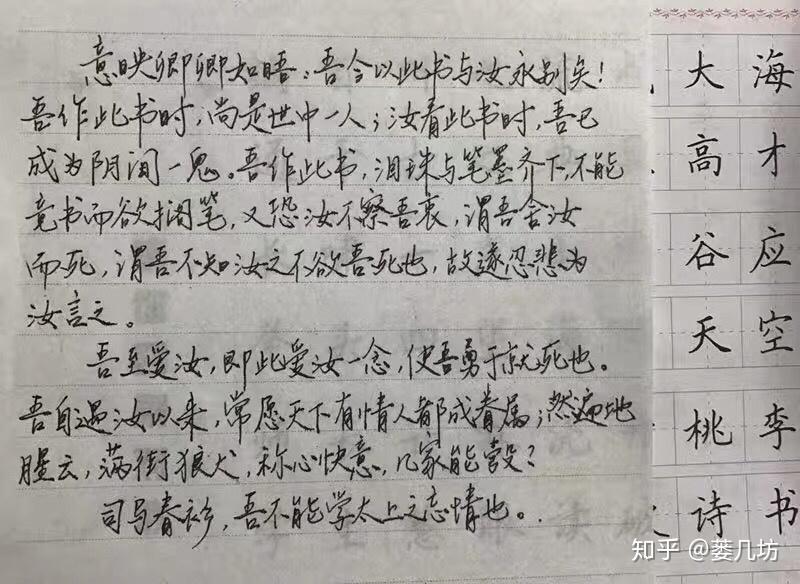 意映卿卿如晤，吾今以此书与汝永别矣！
吾作此书时，尚是世中一人；汝看此书时，吾已
成为阴间一鬼。吾作此书，泪珠与笔墨齐下，不能
竟书而欲搁笔，又恐汝不察吾衷，谓吾舍汝
而死，谓吾不知汝之不欲吾死也，故遂忍悲为
汝言之。
吾至爱汝，即此爱汝一念，使吾勇于就死也。
吾自遇汝以来，常愿天下有情人都成眷属；然遍地
腥云，满街狼犬，称心快意，几家能彀？
司马春衫，吾不能学太上之忘情也。
大海
高才
谷应
天空
桃李
诗书
知乎 @蒌几坊